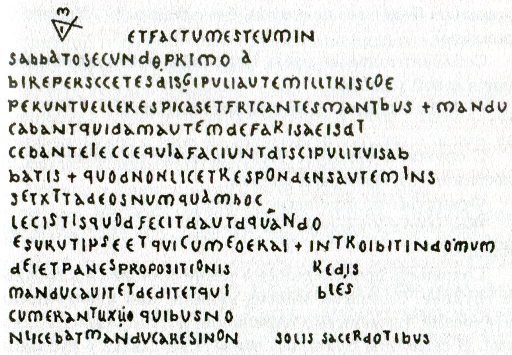 ETFACTUMESTEUMIN
SABBATOSECUNDOPRIMO A
BIREPERSCCETESDISGIPULIAUTEMILLTRISCOE
PERUNTUELLERESPICASETFRTCANTESMANTBUS + MANDU
CABANTQUIDAMAUTEMDEFARISAEISDT
CEBANTEIECCEQUIAFACIUNTDTSCIPULITUISAB
BATIS + QUODNONLICETRESPONDENSAUTEMINS
SETXTTADEOSNUMQUAMHOC
LECISTISQUODFECITDAUTDQUANDO
ESURUTIPSEETQUICUMEOERAI + INTROIBITINDOMUM
DEIETPANESPROPOSITIONIS REDIS
MANDUCAUITETDEDITETQUI BLES
QUIBUSNO
NLICEBATMANDUCARESINON SOLIS SACERDOTIBUS